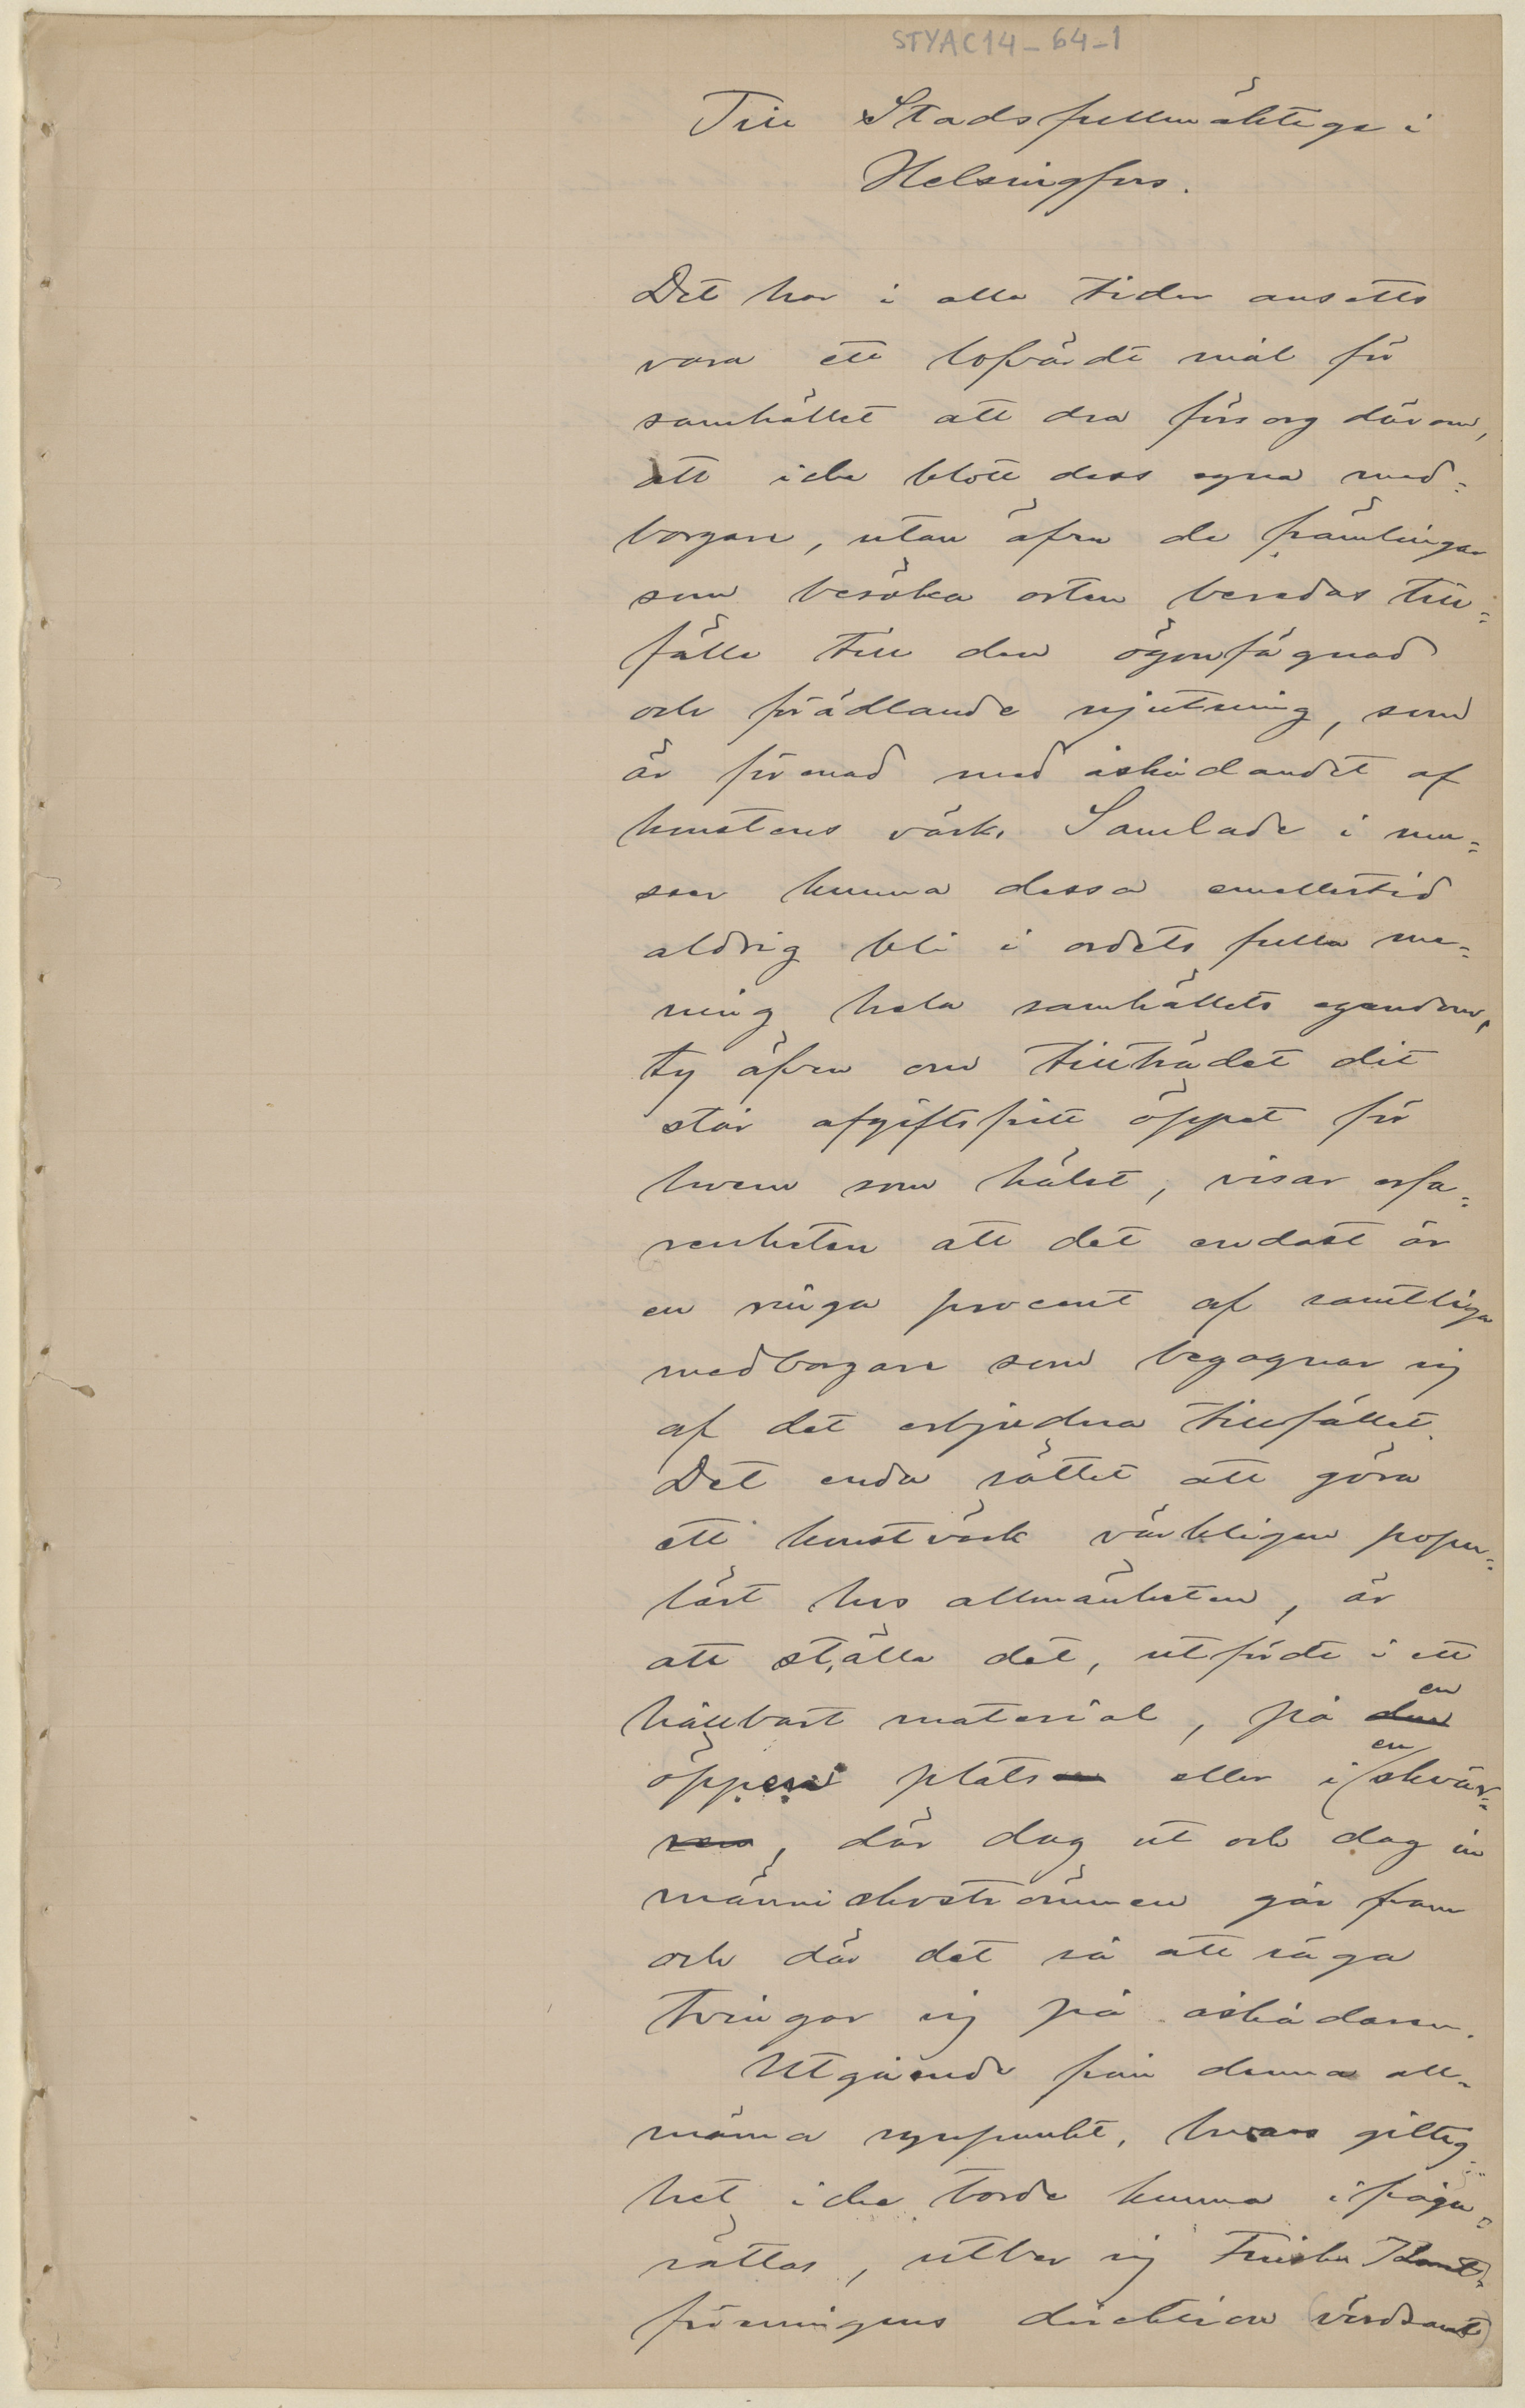 STYAC14-64-1
Till Stadsfullmäktige i
Helsingfors.
Det har i alla tider ansetts
vara ett lofvärdt mål för
samhället att dra försorg därom,
att icke blott dess egna med=
borgare, utan äfven de främlingar
som besöka orten beredas till=
fälle till den ögonfägnad
och förädlande njutning, som
är förenad med åskådandet af
konstens värk. Samlade i mu=
seer kunna dessa emellertid
aldrig bli i ordets fulla me=
ning hela samhällets egendom,
ty äfven om tillträdet dit
står afgiftsfritt öppet för
hvem som hälst, visar erfa=
renheten att det endast är
en ringa procent af samtliga
medborgare som begagnar sig
af det erbjudna tillfället.
Det enda sättet att göra
ett konstvärk värkligen popu=
lärt hos allmänheten, är
att ställa det, utfördt i ett
hållbart material, på den en
öppen plats eller i en skvär=
ren, där dag ut och dag in
människoströmmen går fram
och där det så att säga
tvingar sig på åskådaren.
Utgående från denna all=
männa synpunkt, hvars giltig=
het icke torde kunna ifråga=
sättas, utber sig Finska Konst=
föreningens direktion (vördsamt)